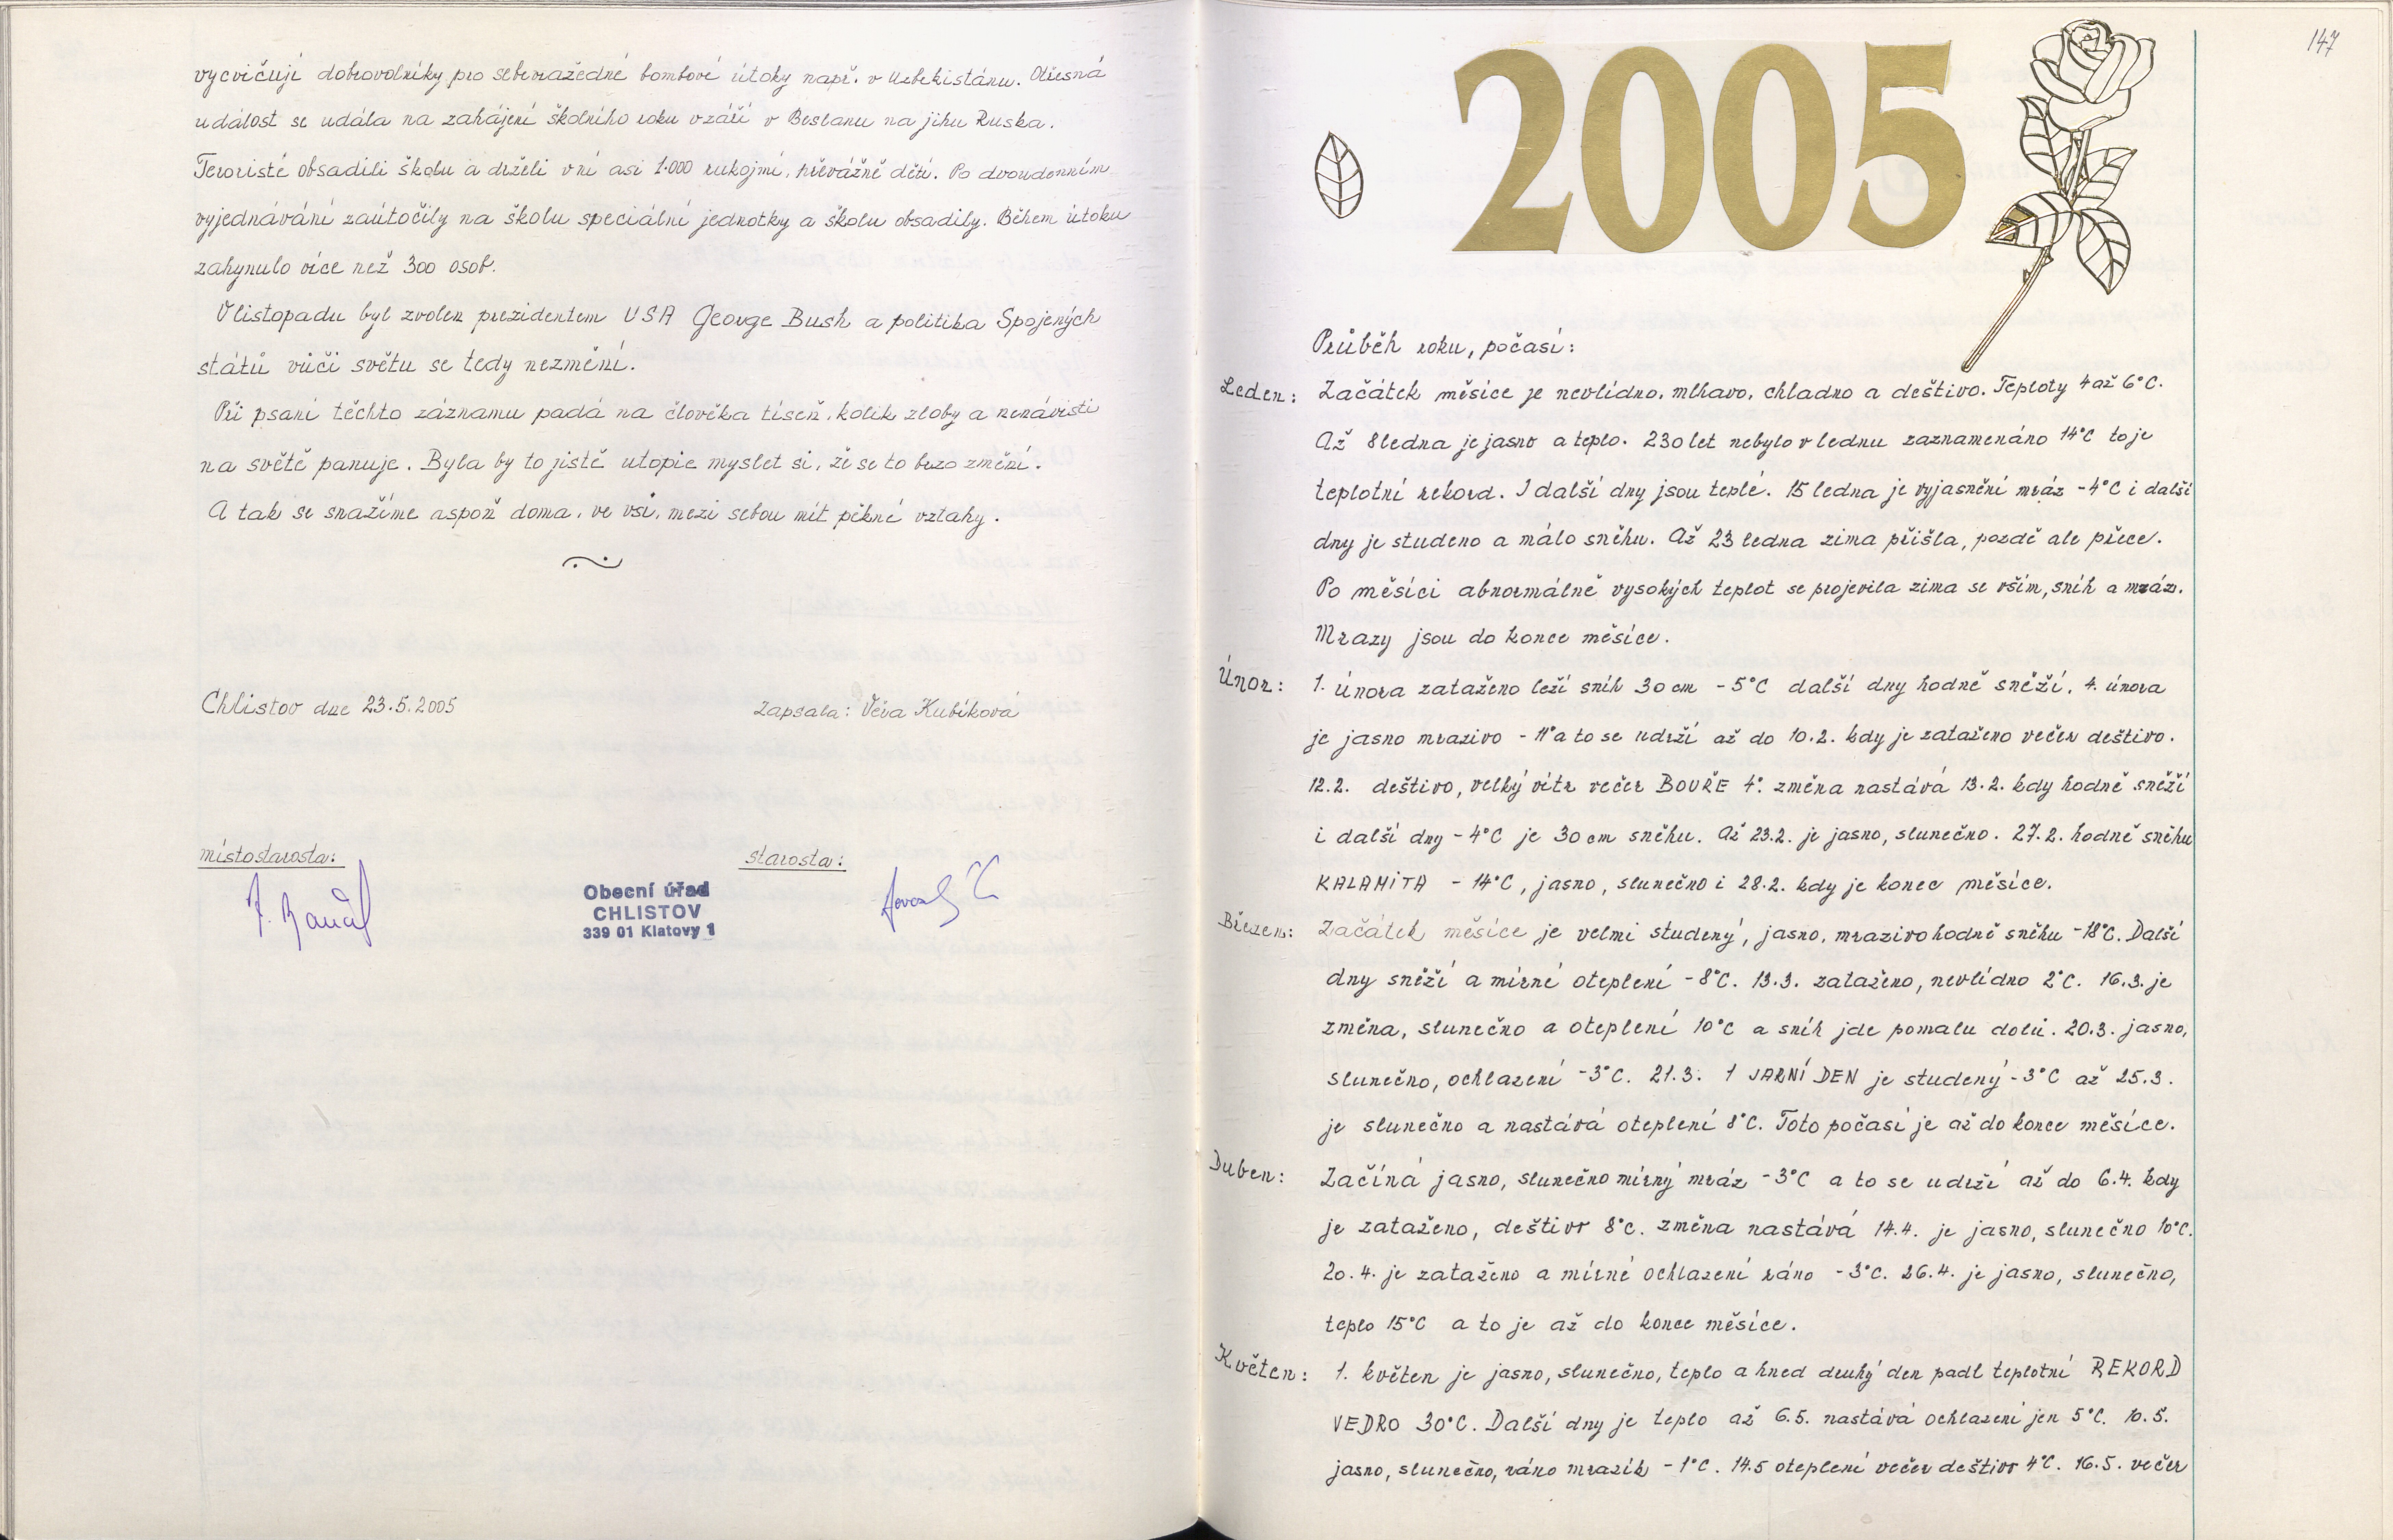 vycvičují dobrovolníky pro sebevražedné bombové útoky např. v Uzbekistánu. Otřesná
událost se udála na zahájení školního roku v září v Beslanu na jihu Ruska.
Teroristé obsadili školu a drželi v ní asi 1.000 rukojmí, převážně děti. Po dvoudenním
vyjednávání zaútočily na školu speciální jednotky a školu obsadily. Během útoku
zahynulo více než 300 osob.
V listopadu byl zvolen prezidentem USA George Bush a politika Spojených
států vůči světu se tedy nezmění.
Při psaní těchto záznamu padá na člověka tíseň, kolik zloby a nenávisti
na světě panuje. Byla by to jistě utopie myslet si, že se to brzo změní.
A tak se snažíme aspoň doma, ve vsi, mezi sebou mít pěkné vztahy.
Chlistov dne 23.5.2005
Zapsala: Věra Kubíková
místostarosta:
starosta:
Obecní úřad
CHLISTOV
339 01 Klatovy 1
147
2005
Průběh roku, počasí:
Leden: Začátek měsíce je nevlídno, mlhavo, chladno a deštivo. Teploty 4 až 6°C.
Až 8 ledna je jasno a teplo. 230 let nebylo v lednu zaznamenáno 14°C to je
teplotní rekord. I další dny jsou teplé. 15 ledna je vyjasnění mráz -4°C i další
dny je studeno a málo sněhu. Až 23 ledna zima přišla, pozdě ale přece.
Po měsíci abnormálně vysokých teplot se projevila zima se vším, sníh a mráz.
Mrazy jsou do konce měsíce.
Únor: 1. února zataženo leží sníh 30 cm -5°C další dny hodně sněží, 4. února
je jasno mrazivo - 11° a to se udrží až do 10.2. kdy je zataženo večer deštivo.
12.2. deštivo, velký vítr večer BOUŘE 4°. změna nastává 13.2. kdy hodně sněží
i další dny - 4°C je 30 cm sněhu. Až 23.2. je jasno, slunečno. 27.2. hodně sněhu
KALAMITA - 14°C, jasno, slunečno i 28.2. kdy je konec měsíce.
Březen: Začátek měsíce je velmi studený, jasno, mrazivo hodně sněhu -18°C. Další
dny sněží a mírné oteplení -8°C. 13.3. zataženo, nevlídno 2°C. 16.3. je
změna, slunečno a oteplení 10°C a sníh jde pomalu dolů. 20.3. jasno,
slunečno, ochlazení -3°C. 21.3. 1 JARNÍ DEN je studený -3°C až 25.3.
je slunečno a nastává oteplení 8°C. Toto počasí je až do konce měsíce.
Duben: Začíná jasno, slunečno mírný mráz -3°C a to se udrží až do 6.4. kdy
je zataženo, deštivo 8°C. změna nastává 14.4. je jasno, slunečno 10°C.
20.4. je zataženo a mírné ochlazení ráno -3°C. 26.4. je jasno, slunečno,
teplo 15°C a to je až do konce měsíce.
Květen: 1. květen je jasno, slunečno, teplo a hned druhý den padl teplotní REKORD
VEDRO 30°C. Další dny je teplo až 6.5. nastává ochlazení jen 5°C. 10.5.
jasno, slunečno, ráno mrazík -1°C. 14.5 oteplení večer deštivo 4°C. 16.5. večer